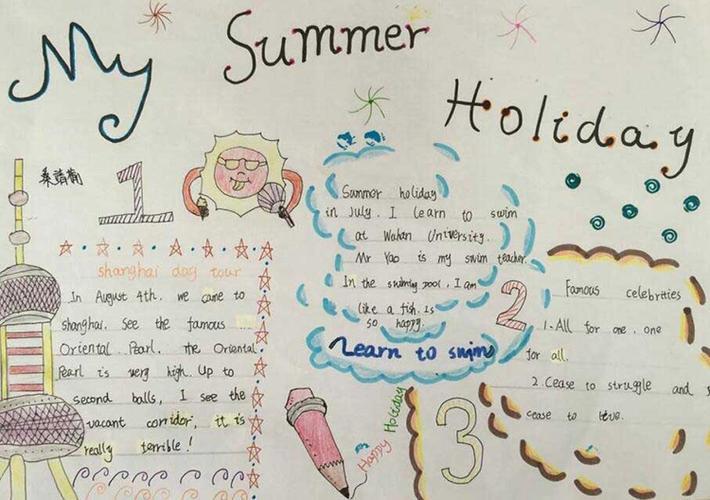 My Summer
Holiday
1
shanghai day tour
In August 4th. we came to
shanghai. See the famous
Oriental Pearl. the Oriental
Pearl is very high. Up to
second balls, I see the
vacant corridor, it is
really terrible!
Summer holiday
in July. I learn to swim
at Wuhan University.
Mr Yao is my swim teacher.
In the swimming pool, I am
like a fish. Is
so happy.
Learn to swim
2
Famous celebrities
1. All for one. one
for all.
2. Cease to struggle and
cease to live.
3
My
Happy
Holiday